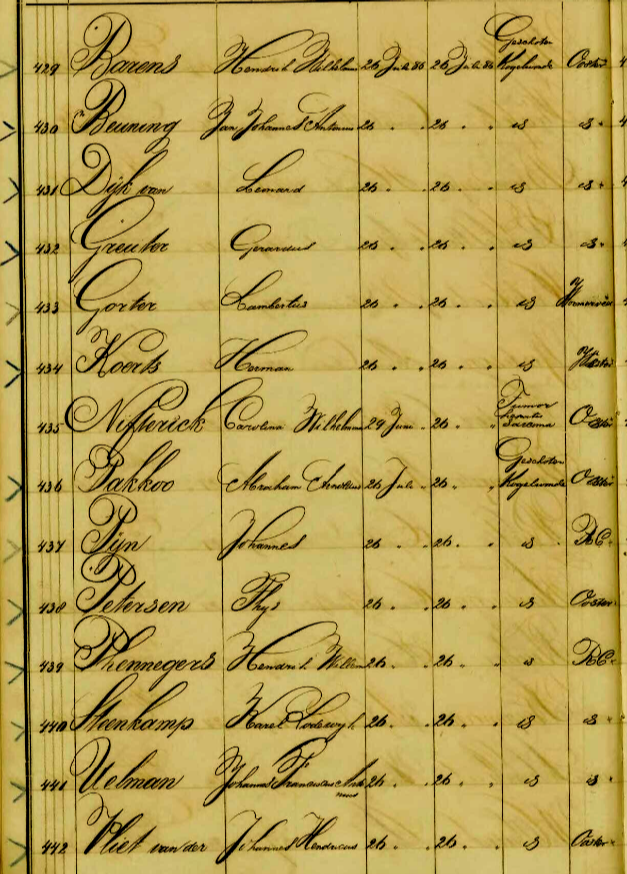 429 Barens Hendrik Wilhelm 26 Juli 86 26 Juli 86 Geschoten Kogelwonde Ooster
430 Beuning Jan Johannes Antonius 26 " " 26 " " id id "
431 Dijk van Leonard 26 " " 26 " " id id "
432 Greuter Gerardus 26 " " 26 " " id id "
433 Gorter Lambertus 26 " " 26 " " id
434 Koerts Herman 26 " " 26 " " id
435 Nifterick Carolina Wilhelmina 29 Juni " 26 " " Tumor Sarcoma Ooster
436 Pakkoo Abraham Cornelius 26 Juli " 26 " " Geschoten Kogelwonde Ooster
437 Pijn Johannes 26 " " 26 " " id RC
438 Petersen Thys 26 " " 26 " " id Ooster
439 Phennegers Hendrik Willem 26 " " 26 " " id RC
440 Steenkamp Karel Lodewyk 26 " " 26 " " id id "
441 Uelman Johannes Franciscus Antonius 26 " " 26 " " id id "
442 Vliet van der Johannes Hendricus 26 " " 26 " " id Ooster